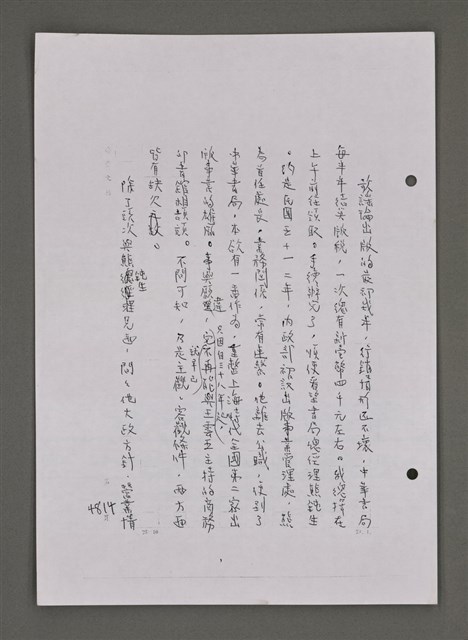 談論出版的最初幾年，行銷情形区不壞，中華書局
每半年結算版稅，一次總有新台幣四千元左右。我總得在
上午前往領取。手續辦完了，順便看望書局總經理熊鈍生
。約是民國五十一二年，內政部初設出版事業管理處，熊
為首任處長，業務関係，常有連繫。他離去公職，便到了
中華書局，本欲有一番作為，重整上海時代全國第二家出
版事業的雄風。事與願違，
只因自三十八年
說早已
不再能與王雲五主持的商務
印書館雄頭。不問可知，乃是主觀、客觀條件，両方面
皆有缺欠
。
除了該次與熊
鈍生
見面，問問他大政方針、營業情
4814